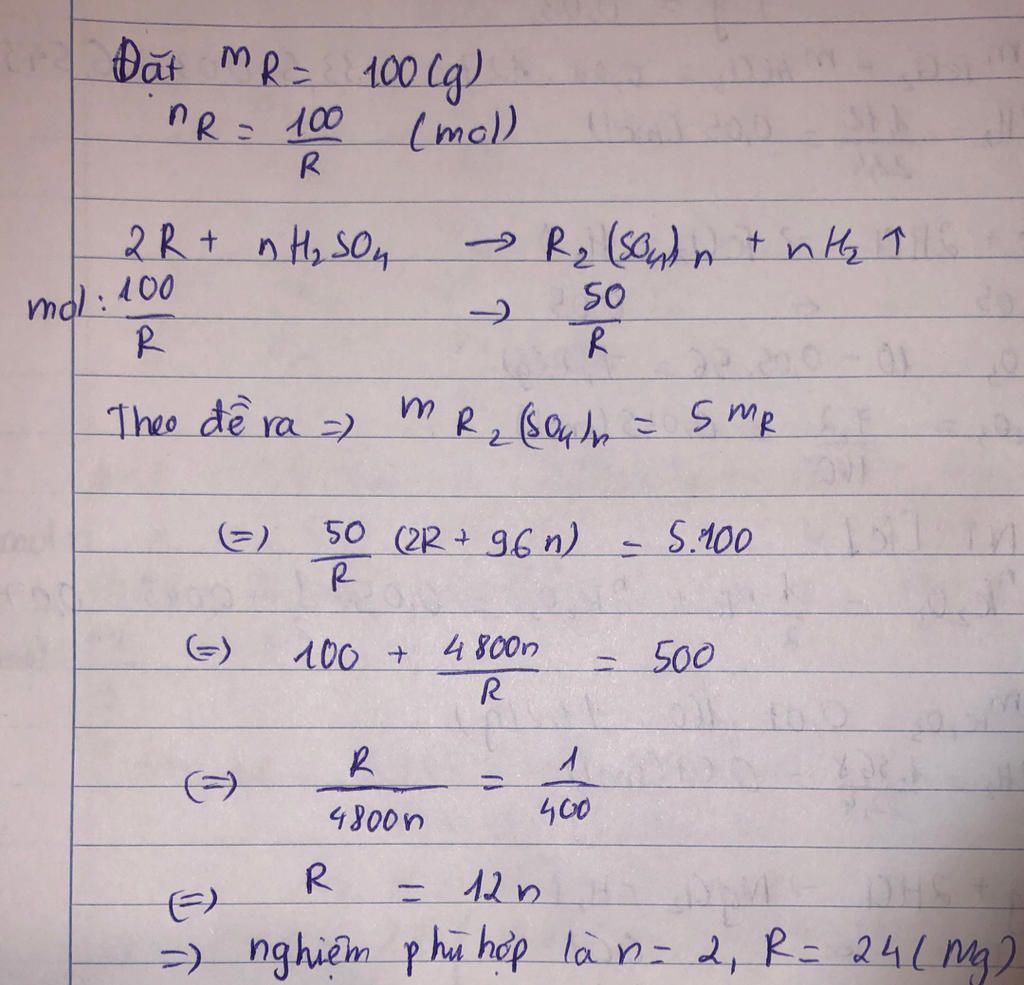 Đặt mR = 100 (g)
nR = 100/R (mol)
2R + nH₂SO₄ → R₂(SO₄)n + nH₂ ↑
mol: 100/R → 50/R
Theo đề ra => m R₂(SO₄)n = 5 mR
(=) 50/R (2R + 96n) = 5.100
(=) 100 + 4800n/R = 500
(=) R/4800n = 1/400
(=) R = 12n
=> nghiệm phù hợp là n = 2, R = 24 (Mg)